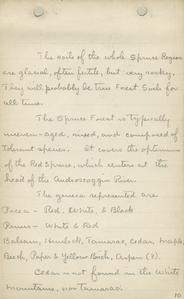 The soils of the whole Spruce Region
are glacial, often fertile, but very rocky.
They will probably be true Forest Soils for
all time.
The Spruce Forest is typically
uneven-aged, mixed, and composed of
tolerant species. It covers the optimum
of the Red Spruce, which centers at the
head of the Androscoggin River.
The genera represented are
Picea - Red, White, & Black
Pinus - White & Red
Balsam, Hemlock, Tamarac, Cedar, Maple,
Beech, Paper & Yellow Birch, Aspen (?).
Cedar is not found in the White
Mountains, nor Tamarac.
10